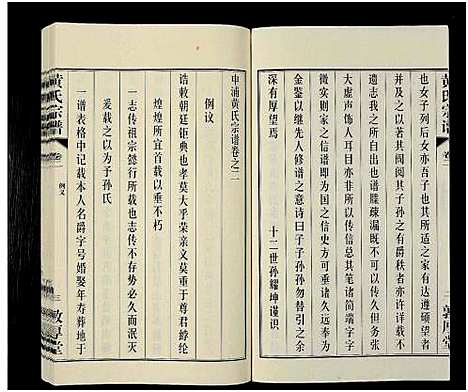 也女子列后女亦吾子也其所适之家有足徵硕望者
并及之以其闻闻子孙之有爵秩者亦许详载不
遗志我之所自出也谱牒疏漏既不可以传久但务张
大虚声饰以上人则尤不可以传久若简而端实而真
不独为一家之信史方将为国史之所取裁焉后世
金鉴以继先人修谱之意诗曰子子孙孙勿替引之余
深有厚望焉
十二世孙耀坤谨识
黄氏宗谱
卷二
三
敦厚堂
申浦黄氏宗谱卷之二
例议
诰敕朝廷钜典也孝莫大乎荣亲义莫重于尊君鲟纶
煌煌所宜首载以垂不朽
一志传祖宗懿行所载也志传不存势必久而泯灭
爰载之以为子孙氏
一谱表格中记载本人名爵字号婚娶年寿葬地于
黄氏宗谱
卷二
例义
三
敦厚堂